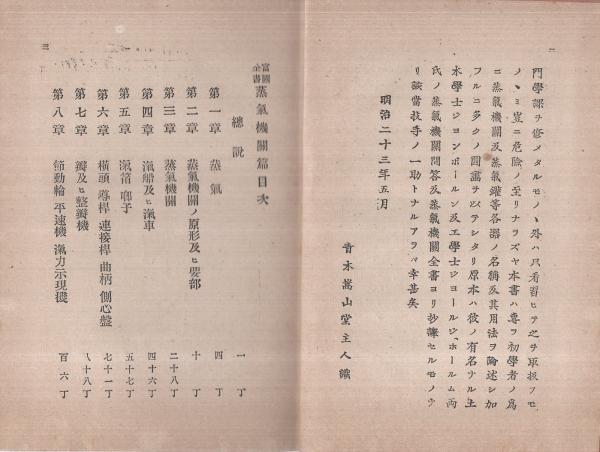 二
門學課ヲ修メタルモノヽ外ハ只看習ヒテ之ヲ取扱フモ
ノヽミ豈ニ危險ノ至リナラズヤ本書ハ專ラ初學者ノ爲
ニ蒸氣機關及蒸氣罐等各器ノ名稱及其用法ヲ論述シ加
フルニ多クノ圖ヲ以テシタリ原本ハ彼ノ有名ナル土
木學士ジヨンボールン及工學士ジヨールジ、ホールム兩
氏ノ蒸氣機關問答及蒸氣機關全書ヨリ抄譯セルモノナ
リ該當技手ノ一助トナルアラバ幸甚矣
明治二十三年五月
青木嵩山堂主人識
富國全書 蒸氣機關篇目次
總説 一丁
第一章 蒸氣 四丁
第二章 蒸氣機關ノ原形及ヒ要部 十丁
第三章 蒸氣機關 二十八丁
第四章 滊船及ヒ滊車 四十六丁
第五章 滊筩 喞子 五十七丁
第六章 橫頭 導桿 連接桿 曲柄 側心盤 七十一丁
第七章 瓣及ヒ整瓣機 八十八丁
第八章 節動輪 平速機 滊力示現機 百六丁
一
三